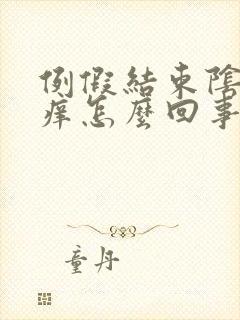 例假結束陰
痒怎麼回事
童丹